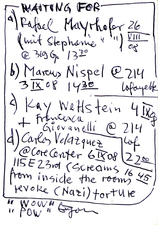 WAITING FOR:
a) Rafael Mayrhofer 26
(mit Stephanie " a) VIII
@ 303G 13 20 08
b) Marcus Nispel @ 214
3 IX 08 14 30 Lafayette
c) Kay Wettstein 4 IX 08
+ Francesca
Giovanelli @ 214
d) Carlos Velazquez Laf
@ CoreCenter 6 IX 08 22 00
115 E 23rd (screams 16 45
from inside the rooms
evoke (Nazi) torture
"WOW"
"POW"